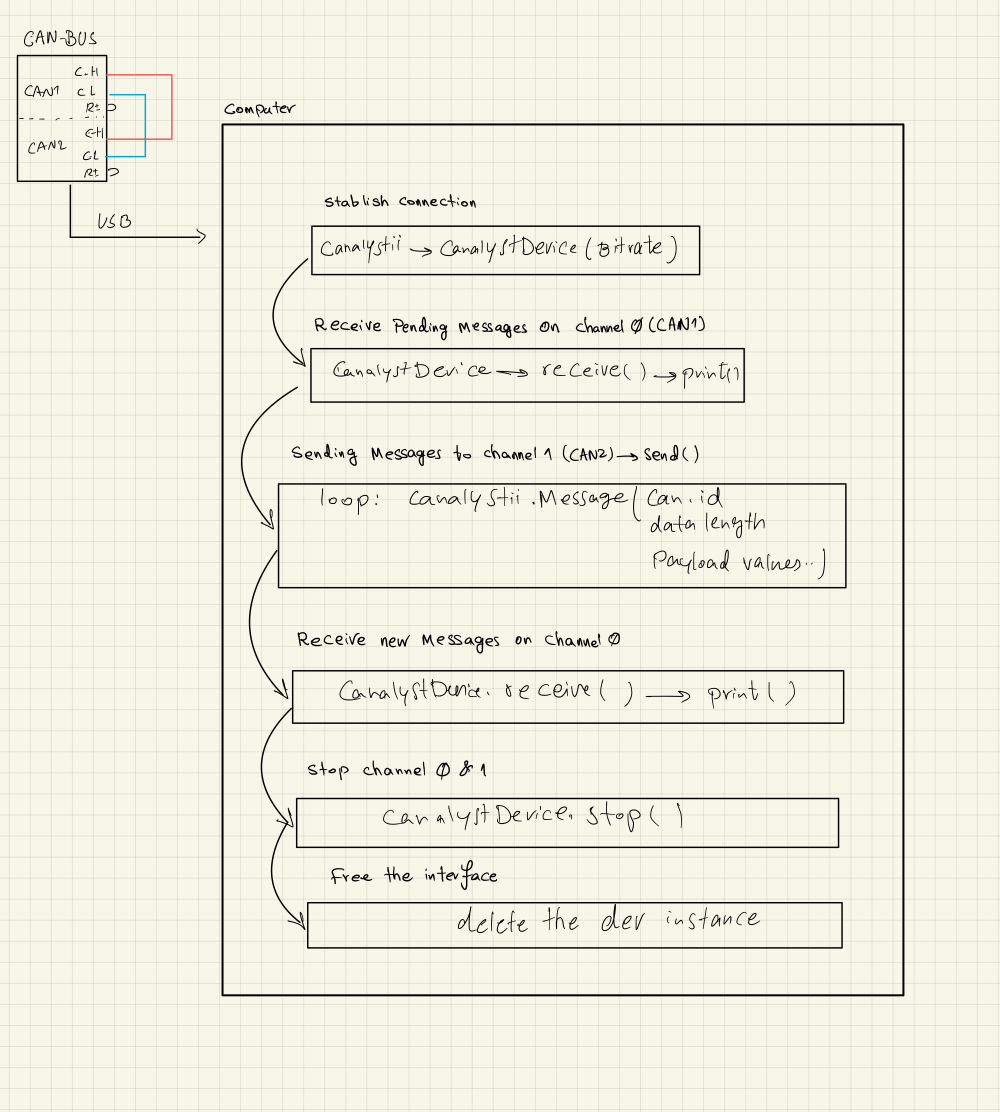 CAN-BUS
C-H
CAN1 CL
Rt
C-H
CAN2
CL
Rt
USB
Computer
Stablish connection
Canalystii → CanalystDevice (Bitrate)
Receive Pending Messages on channel 0 (CAN1)
CanalystDevice → receive() → print()
Sending Messages to channel 1 (CAN2) → Send()
loop: canalystii.Message( Can.id
data length
Payload values..)
Receive new Messages on channel 0
CanalystDevice.receive( ) → print( )
Stop channel 0 & 1
canalystDevice.stop( )
Free the interface
delete the dev instance